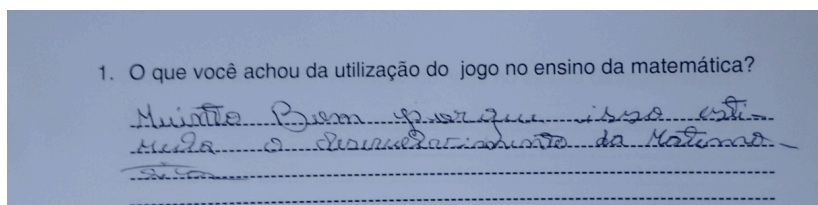 1. O que você achou da utilização do jogo no ensino da matemática?
Muintto Bom porque isso esti-
mula o desenvolvimento da Matema-
tica